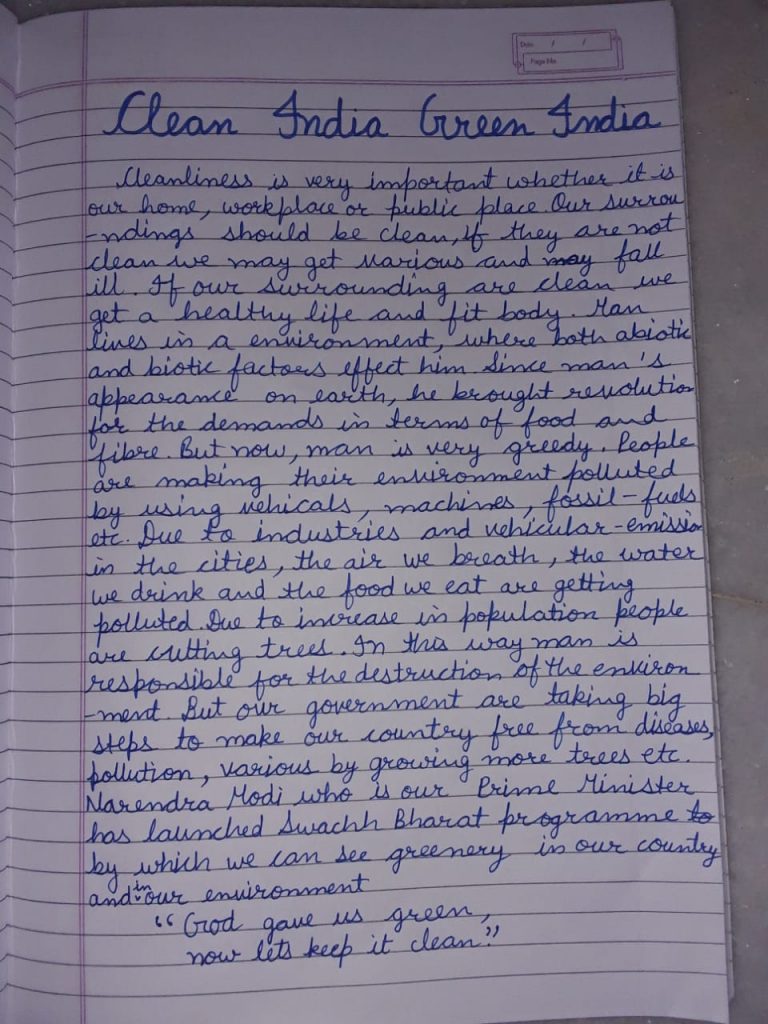 Date / /
Page No.
Clean India Green India
Cleanliness is very important whether it is
our home, workplace or public place. Our surrou
-ndings should be clean, if they are not
clean we may get various and may fall
ill. If our surrounding are clean we
get a healthy life and fit body. Man
lives in a environment, where both abiotic
and biotic factors effect him. Since man's
appearance on earth, he brought revolution
for the demands in terms of food and
fibre. But now, man is very greedy. People
are making their environment polluted
by using vehicals, machines, fossil-fuels
etc. Due to industries and vehicular-emission
in the cities, the air we breath, the water
we drink and the food we eat are getting
polluted. Due to increase in population people
are cutting trees. In this way man is
responsible for the destruction of the environ
-ment. But our government are taking big
steps to make our country free from diseases,
pollution, various by growing more trees etc.
Narendra Modi who is our Prime Minister
has launched Swachh Bharat programme to
by which we can see greenery in our country
and in our environment
"God gave us green,
now lets keep it clean."